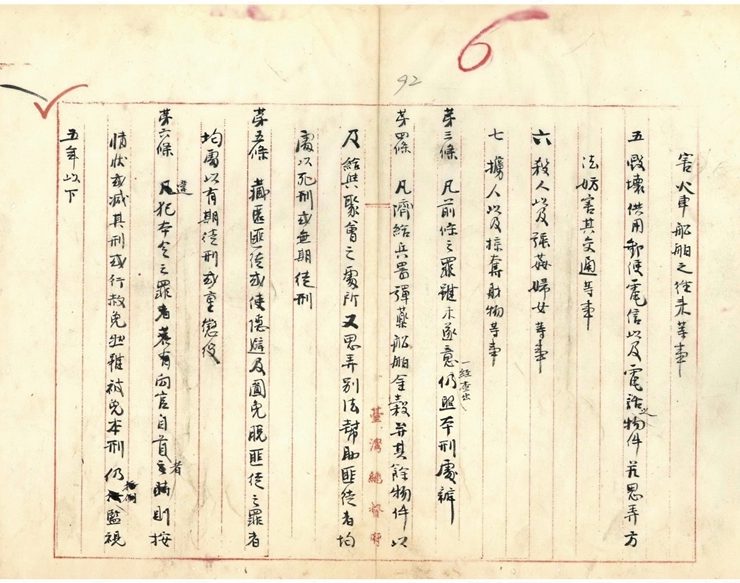 6
92
害火車船舶之往来等事
五 毀壞供用郵便電信以及電話之物件若思弄方
法妨害其交通等事
六 殺人以及强姦婦女等事
七 擄人以及掠奪財物等事
第三條 凡前條之罪雖未遂意一経查出仍照本刑處辦
第四條 凡濟給兵器彈藥船舶金穀并其餘物件以
及給與聚會之處所又思弄別法幇助匪徒者均
處以死刑或無期徒刑
第五條 藏匿匪徒或使隱避及圖免脱匪徒之罪者
均處以有期徒刑或重懲役
第六條 凡違犯本令之罪者若有向官自首者則按
情狀或減其刑或行赦免但雖被免本刑仍按例監視
五年以下
臺灣總督府